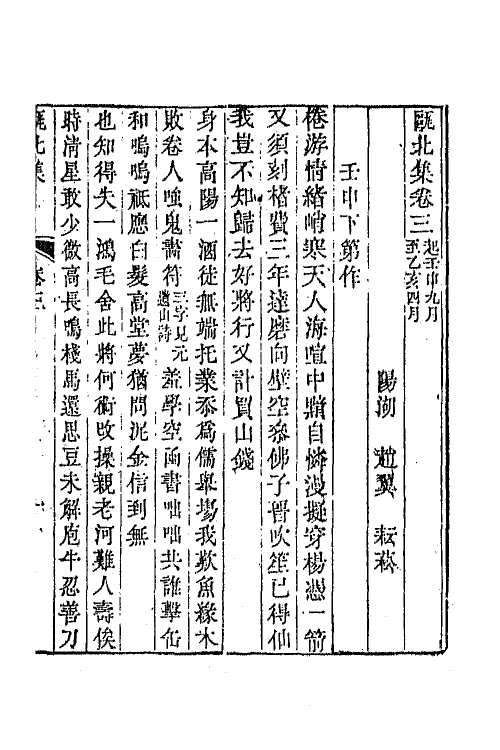 甌北集卷三起壬申九月至乙亥四月
陽湖 趙翼 耘菘
壬申下第作
倦游情緒峭寒天人海喧中黯自憐漫擬穿楊憑一箭
又須刻楮費三年達磨向壁空參佛子晉吹笙已得仙
我豈不知歸去好將行又計買山錢
身本高陽一酒徒無端托業忝為儒舉場我歎魚緣木
敗卷人嗤鬼畫符三字見元遺山詩羞學空函書咄咄共誰擊缶
和嗚嗚祗應白髮高堂夢猶問泥金信到無
也知得失一鴻毛舍此將何術改操親老河難人壽俟
時清星敢少微高長鳴棧馬還思豆未解庖牛忍善刀
甌北集 卷三 一